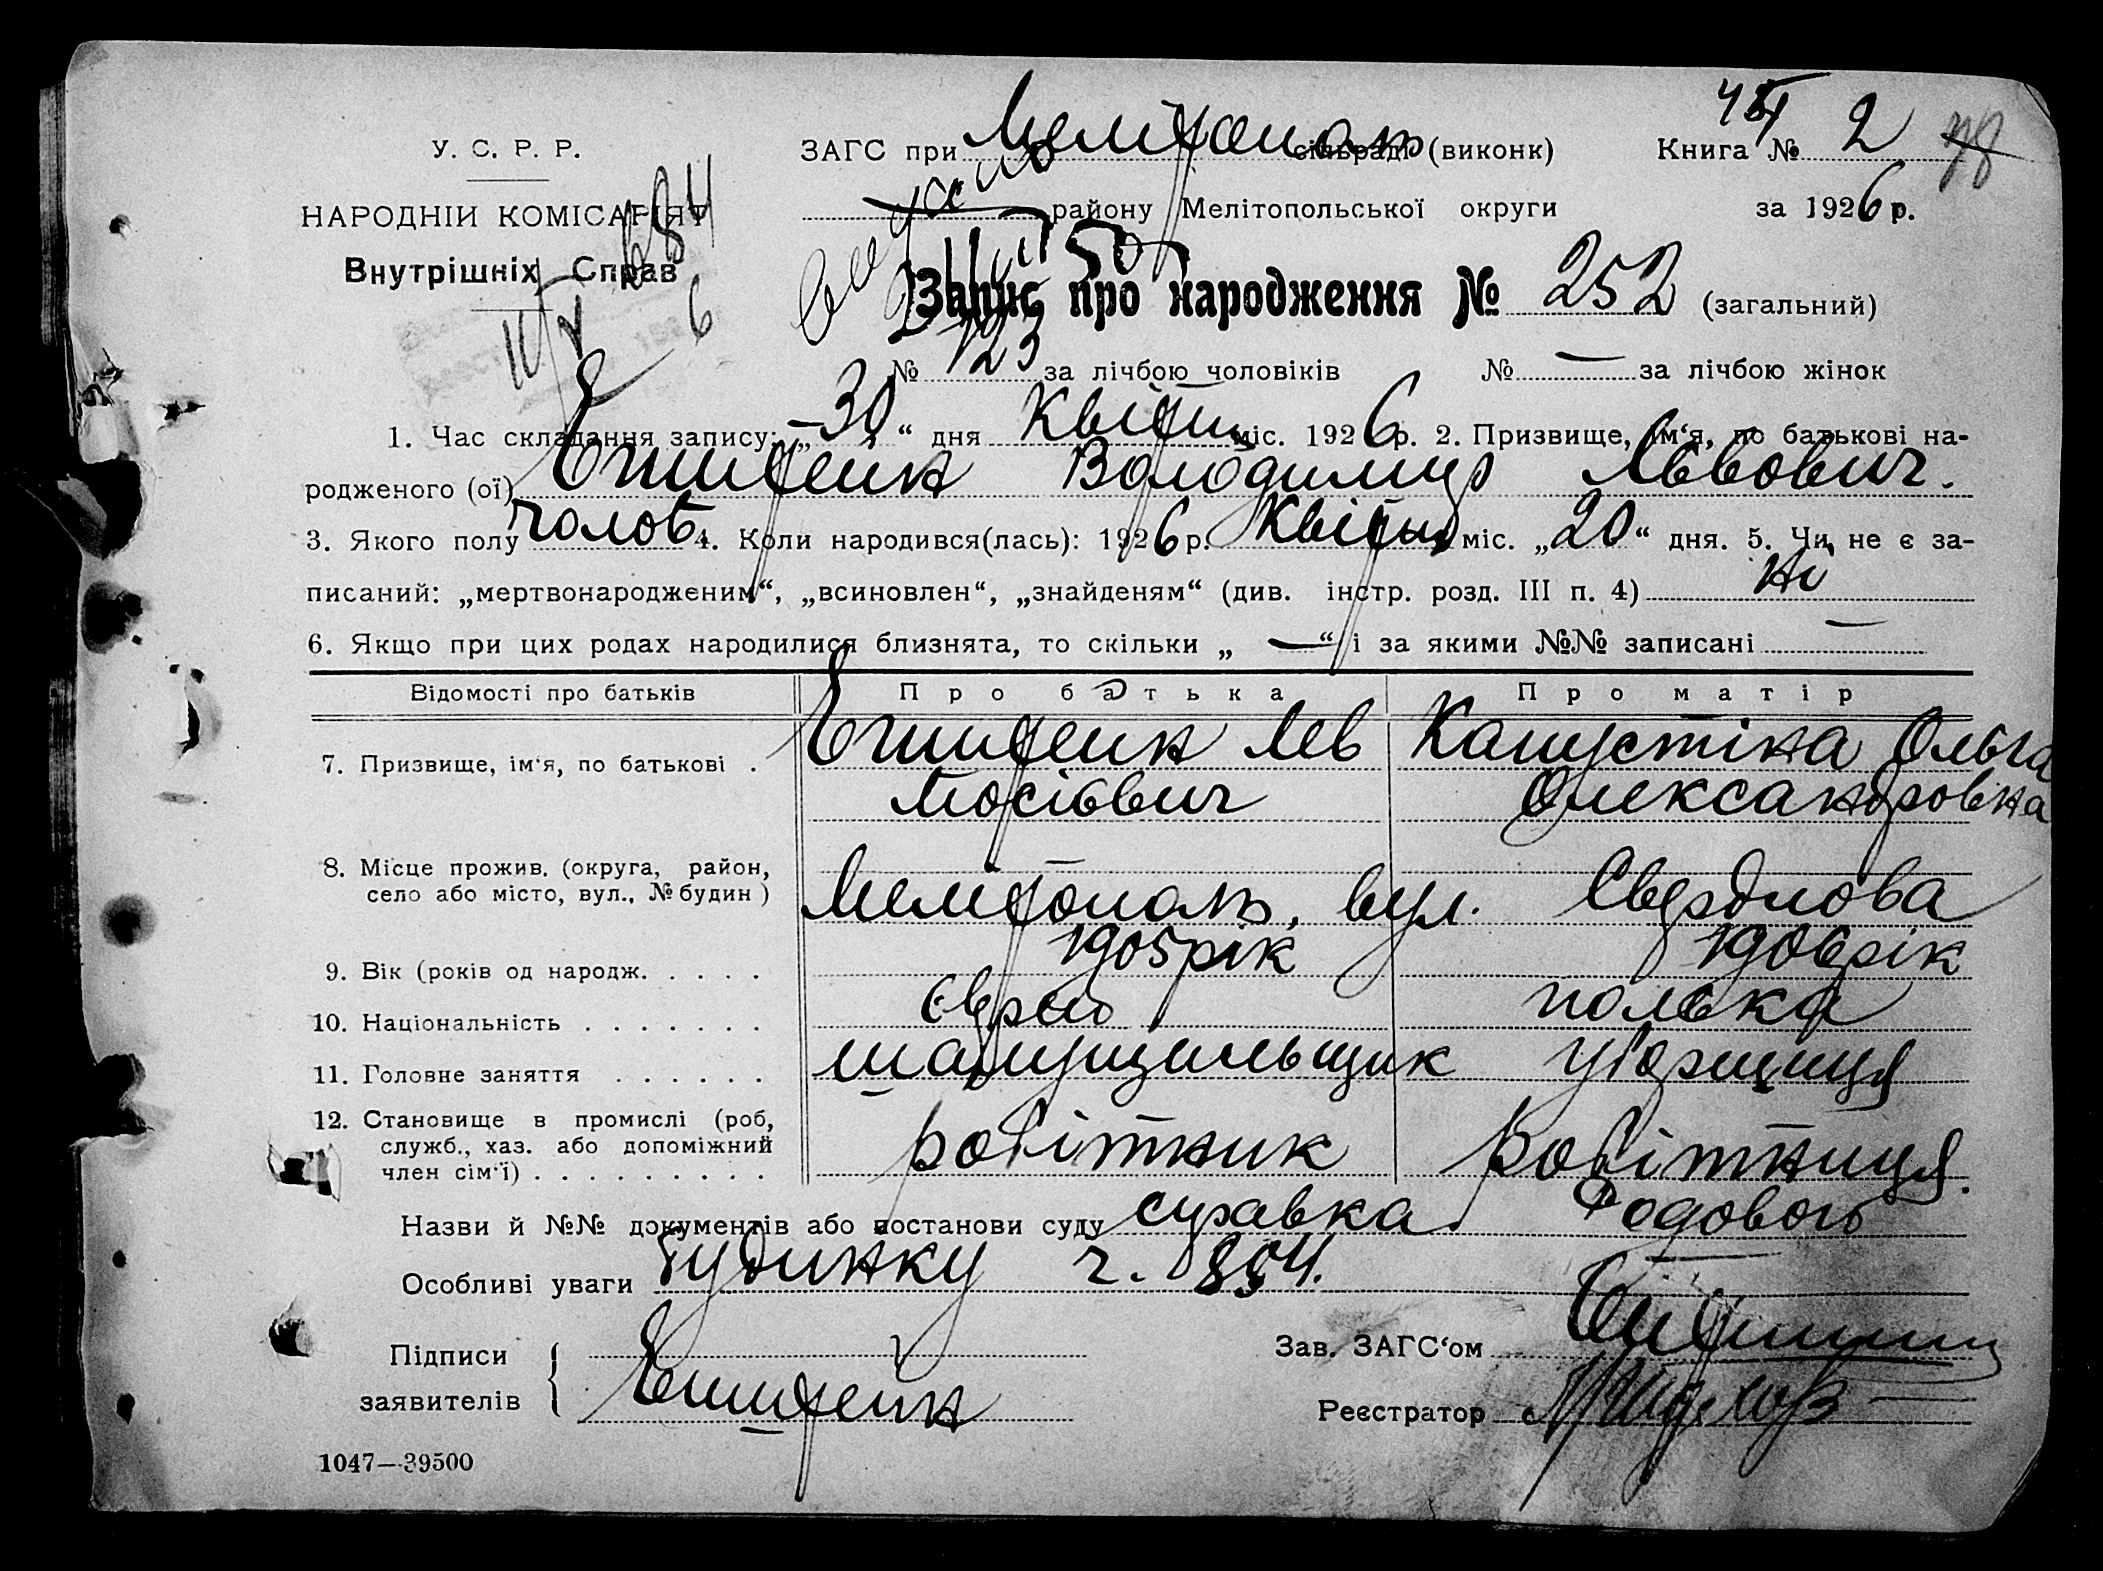 У. С. Р. Р.
ЗАГС при Мелітополь сільраді (виконк)
Книга № 2 78
НАРОДНІЙ КОМІСАРІЯТ
району Мелітопольської округи
за 1926 р.
Внутрішніх Справ
Запис про народження № 252 (загальний)
№ 123 за лічбою чоловіків № — за лічбою жінок
1. Час складання запису: „30“ дня Квітня міс. 1926 р. 2. Призвище, ім‘я, по батькові на-
родженого (ої) Епштейн Володимир Львович.
3. Якого полу чолов 4. Коли народився(лась): 1926 р. Квітня міс. „20“ дня. 5. Чи не є за-
писаний: „мертвонародженим“, „всиновлен“, „знайденям“ (див. інстр. розд. III п. 4) ні
6. Якщо при цих родах народилися близнята, то скільки „—“ і за якими №№ записані —
Відомості про батьків Про батька Про матір
7. Призвище, ім‘я, по батькові . Епштейн Лев Капустіна Ольга
Мосієвич Олександровна
8. Місце прожив. (округа, район,
село або місто, вул., № будин) Мелітополь, вул. Свердлова
9. Вік (років од народж. . . . . 1905 рік 1906 рік
10. Національність . . . . . . . Єврей полька
11. Головне заняття . . . . . .
12. Становище в промислі (роб,
служб., хаз. або допоміжний
член сім‘ї) . . . . . . . . . робітник робітниця.
Назви й №№ документів або постанови суду справка Родового
Особливі уваги будинку ч. 854.
Підписи
Зав. ЗАГС‘ом
заявителів Епштейн
Реєстратор
1047—39500